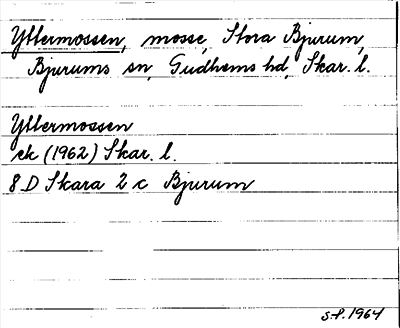 Yttermossen, mosse, Stora Bjurum,
Bjurums sn, Gudhems hd, Skar. l.
Yttermossen
ek (1962) Skar. l.
8 D Skara 2 c Bjurum
S.P. 1964